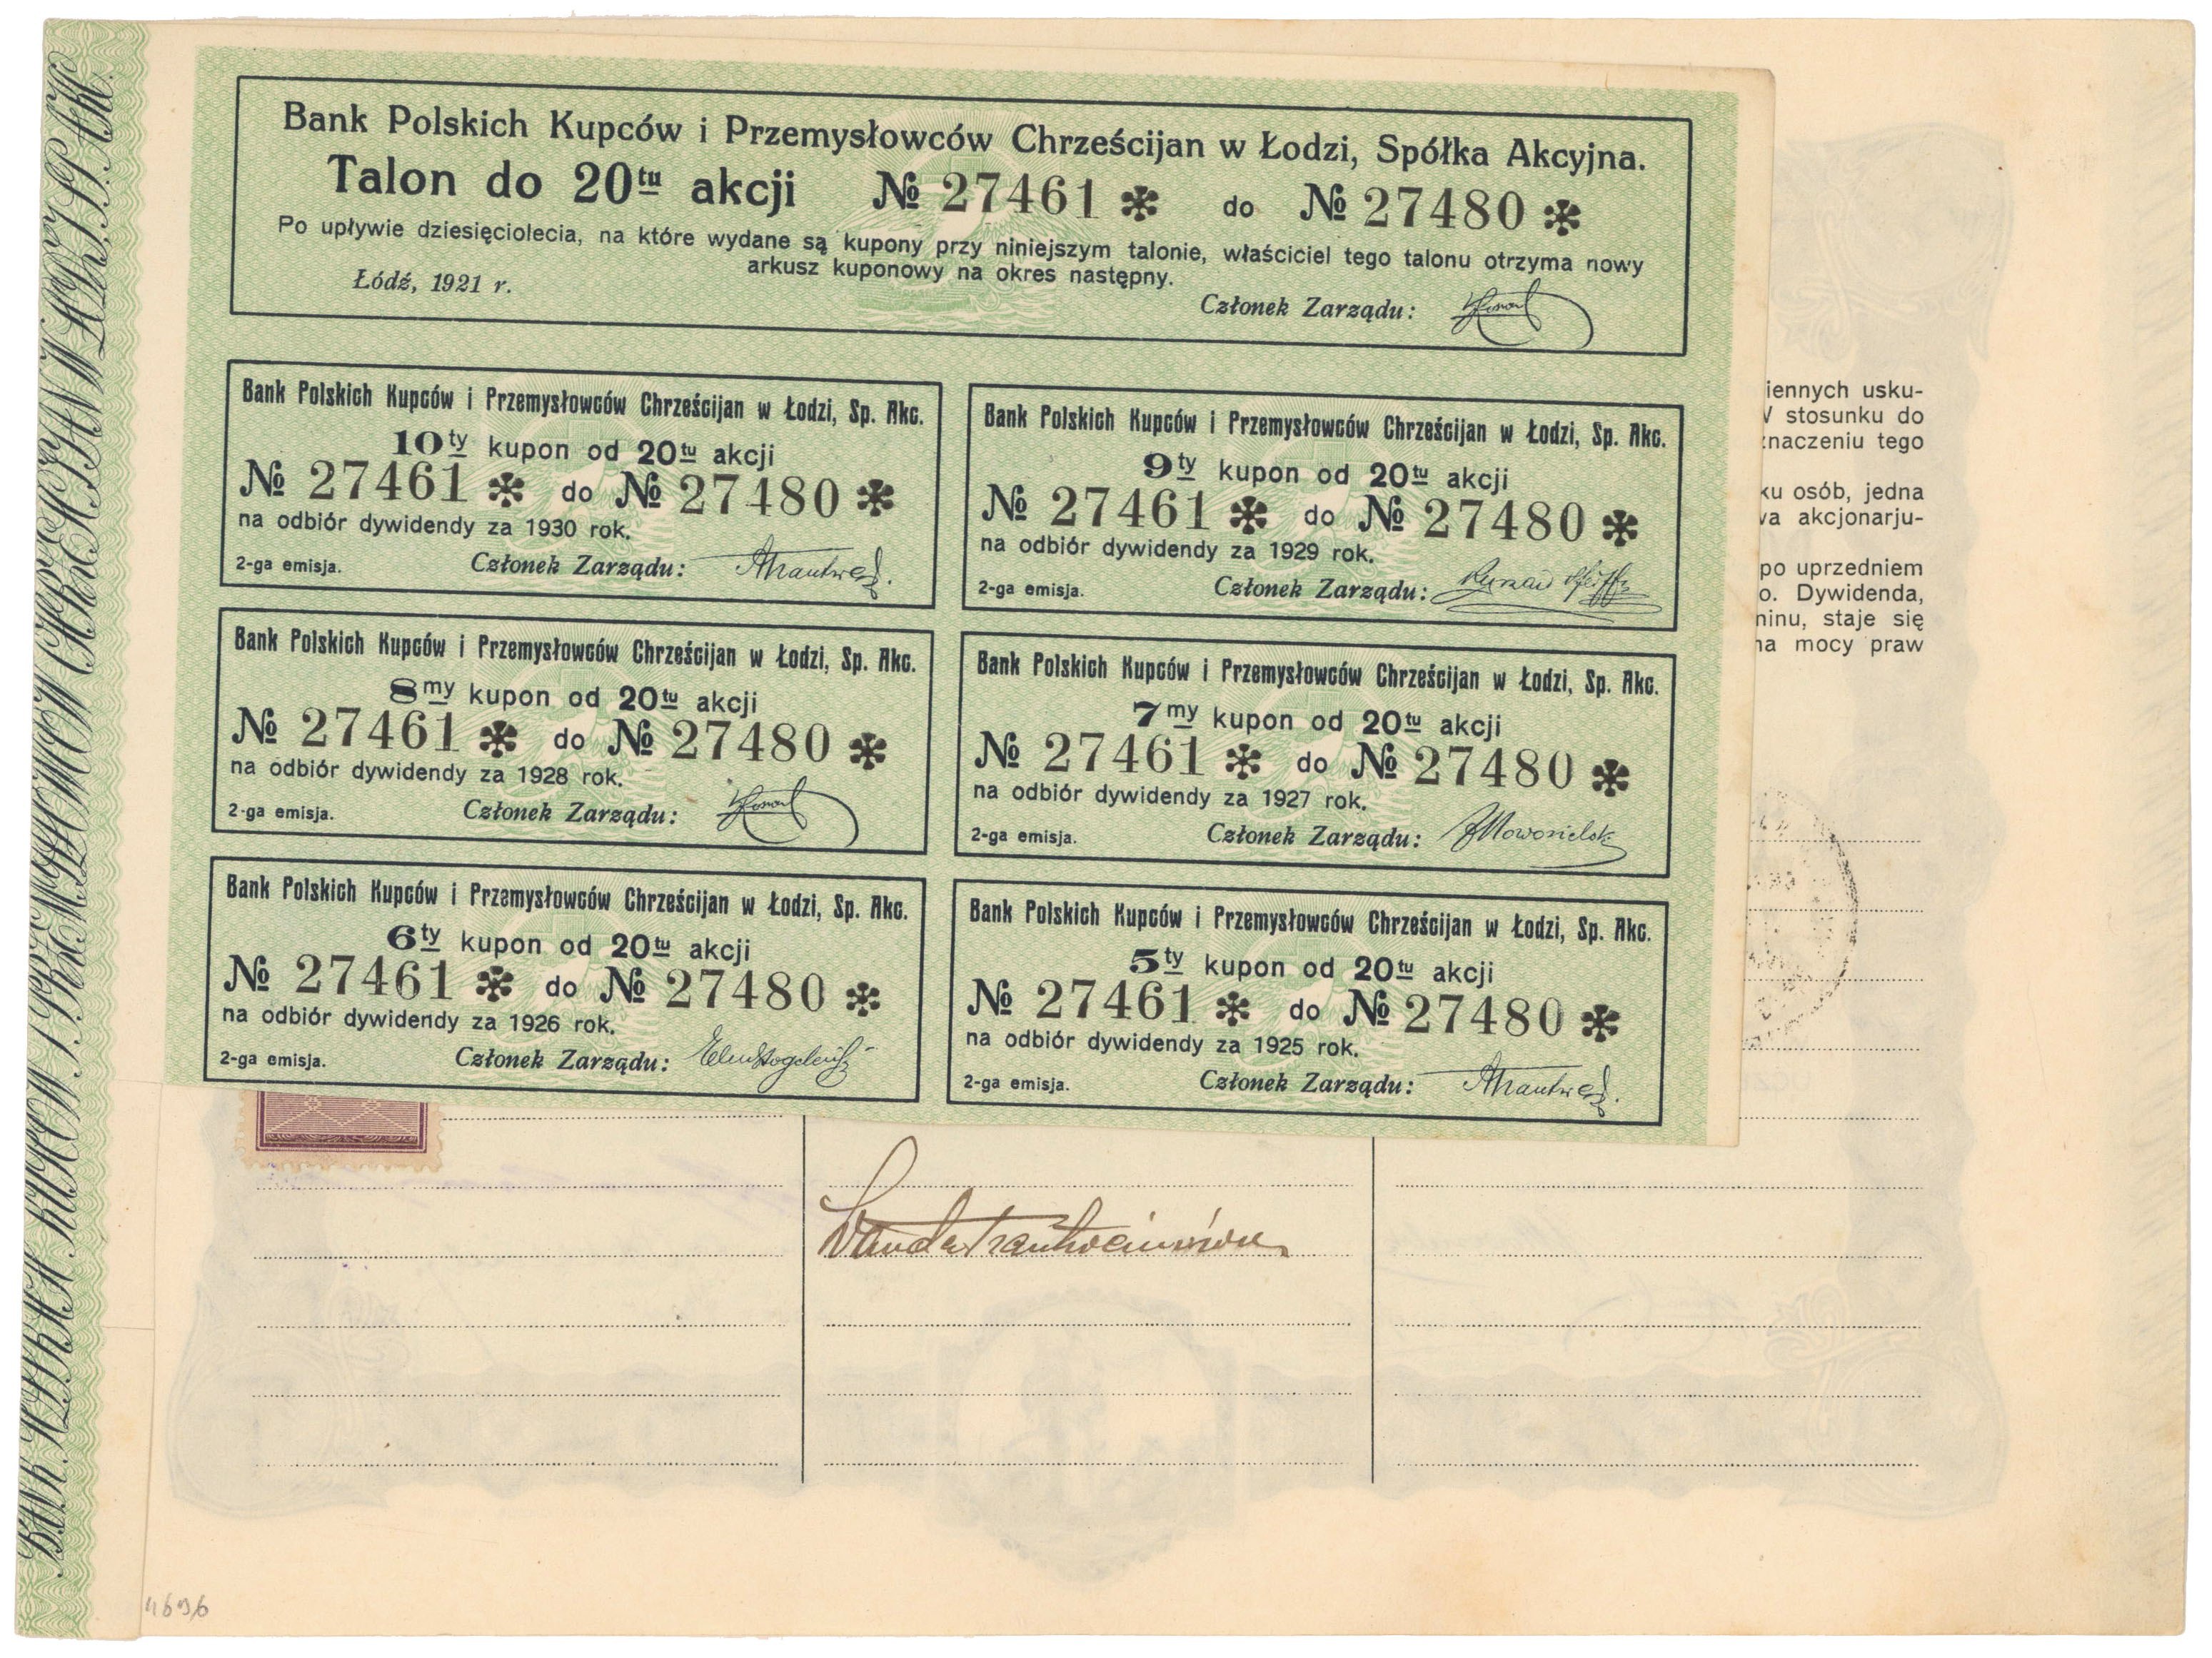 Bank Polskich Kupców i Przemysłowców Chrześcijan w Łodzi, Spółka Akcyjna.
Talon do 20tu akcji № 27461 * do № 27480 *
Po upływie dziesięciolecia, na które wydane są kupony przy niniejszym talonie, właściciel tego talonu otrzyma nowy
arkusz kuponowy na okres następny.
Łódź, 1921 r.
Członek Zarządu:
Bank Polskich Kupców i Przemysłowców Chrześcijan w Łodzi, Sp. Akc.
10ty kupon od 20tu akcji
№ 27461 * do № 27480 *
na odbiór dywidendy za 1930 rok.
2-ga emisja. Członek Zarządu:
Bank Polskich Kupców i Przemysłowców Chrześcijan w Łodzi, Sp. Akc.
9ty kupon od 20tu akcji
№ 27461 * do № 27480 *
na odbiór dywidendy za 1929 rok.
2-ga emisja. Członek Zarządu:
Bank Polskich Kupców i Przemysłowców Chrześcijan w Łodzi, Sp. Akc.
8my kupon od 20tu akcji
№ 27461 * do № 27480 *
na odbiór dywidendy za 1928 rok.
2-ga emisja. Członek Zarządu:
Bank Polskich Kupców i Przemysłowców Chrześcijan w Łodzi, Sp. Akc.
7my kupon od 20tu akcji
№ 27461 * do № 27480 *
na odbiór dywidendy za 1927 rok.
2-ga emisja. Członek Zarządu:
Bank Polskich Kupców i Przemysłowców Chrześcijan w Łodzi, Sp. Akc.
6ty kupon od 20tu akcji
№ 27461 * do № 27480 *
na odbiór dywidendy za 1926 rok.
2-ga emisja. Członek Zarządu:
Bank Polskich Kupców i Przemysłowców Chrześcijan w Łodzi, Sp. Akc.
5ty kupon od 20tu akcji
№ 27461 * do № 27480 *
na odbiór dywidendy za 1925 rok.
2-ga emisja. Członek Zarządu:
iennych usku-
stosunku do
znaczeniu tego
ku osób, jedna
wa akcjonarju-
po uprzedniem
o. Dywidenda,
minu, staje się
na mocy praw
4696